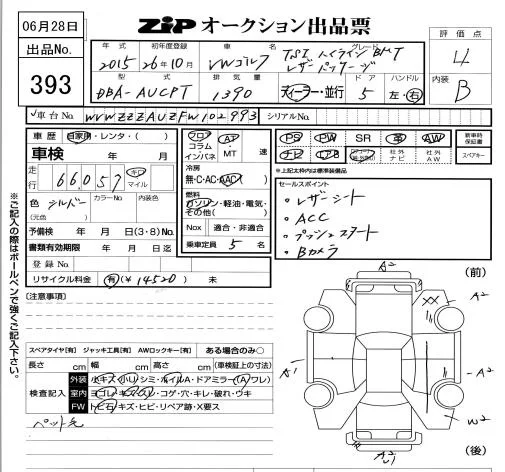 06月28日
出品No.
393
ZIP オークション出品票
評価点
4
内装
B
年式 初年度登録 車名 グレード
2015 26年10月 VWゴルフ TSI ハイラインBMT
レザーパッケージ
型式 排気量 ドア ハンドル
DBA-AUCPT 1390 ディーラー・並行 5 左・右
車台No. WVWZZZAUZFW102993 シリアルNo.
車歴 自家用・レンタ・( )
車検 年 月
走行 66,057 キロ マイル
色 シルバー カラーNo. 内装色
(元色)
予備検 年 月 日(3・8)No.
書類有効期限 年 月 日迄
登録No.
リサイクル料金 有(¥14520) 未
フロア コラム インパネ
AT・MT 速
冷房
無・C・AC・AAC
燃料
ガソリン・軽油・電気・その他( )
Nox 適合・非適合
乗車定員 5 名
PS PW SR 革 AW
ナビ 社外ナビ 社外AW
新車時保証書
スペアキー
*上記太枠内は標準装備品
セールスポイント
・レザーシート
・ACC
・プッシュスタート
・Bカメラ
※ご記入の際はボールペンで強くご記入下さい。
(注意事項)
スペアタイヤ[有] ジャッキ工具[有] AWロックキー[有] ある場合のみ○
長さ cm 幅 cm 高さ cm (車検証上の寸法)
検査記入
外装 小キズ・小凹・シミ・ホイルA・ドアミラー(A ワレ)
室内 ヨゴレ・キズ・スレ・コゲ・穴・キレ・破れ・ウキ
FW トビ石・キズ・ヒビ・リペア跡・X要ス
(前)
A2
XX
A2
A1
A2
W2
(後)